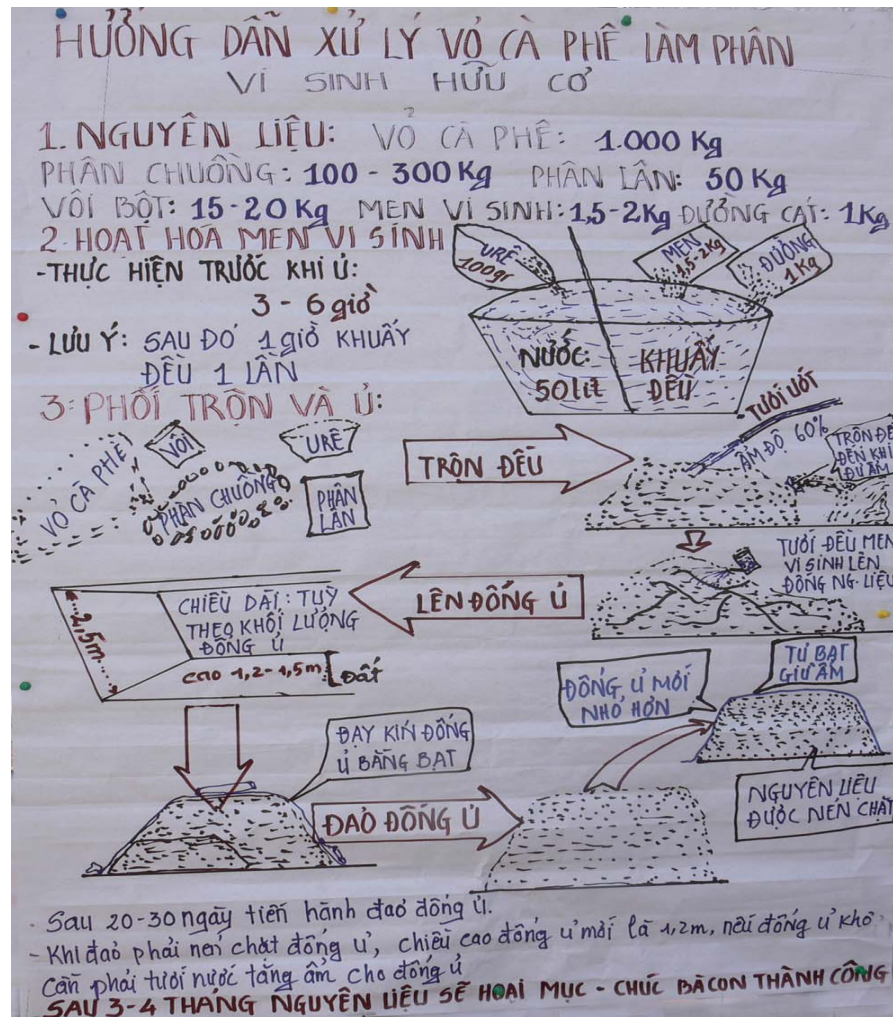 HƯỚNG DẪN XỬ LÝ VỎ CÀ PHÊ LÀM PHÂN
VI SINH HỮU CƠ
1. NGUYÊN LIỆU: VỎ CÀ PHÊ: 1.000 Kg
PHÂN CHUỒNG: 100 - 300 Kg PHÂN LÂN: 50 Kg
VÔI BỘT: 15-20 Kg MEN VI SINH: 1,5-2Kg ĐƯỜNG CÁT: 1Kg
2. HOẠT HÓA MEN VI SINH
-THỰC HIỆN TRƯỚC KHI Ủ:
3 - 6 giờ
- LƯU Ý: SAU ĐÓ 1 giờ KHUẤY
ĐỀU 1 LẦN
URÊ
100gr
MEN
1,5-2Kg
ĐƯỜNG
1Kg
NƯỚC:
50lit
KHUẤY
ĐỀU
3: PHỐI TRỘN VÀ Ủ:
VỎ CÀ PHÊ
VÔI
URÊ
PHÂN CHUỒNG
PHÂN
LÂN
TRỘN ĐỀU
TƯỚI ƯỚT
ẨM ĐỘ 60%
TRỘN ĐỀ
ĐẾN KHI
ĐỦ ẨM
TƯỚI ĐỀU MEN
VI SINH LÊN
ĐỐNG NG. LIỆU
LÊN ĐỐNG Ủ
2,5m
CHIỀU DÀI: TUỲ
THEO KHỐI LƯỢNG
ĐỐNG Ủ
cao 1,2-1,5m
Đất
ĐẬY KÍN ĐỐNG
Ủ BẰNG BẠT
ĐẢO ĐỐNG Ủ
ĐỐNG Ủ MỚI
NHỎ HƠN
TỦ BẠT
GIỮ ẨM
NGUYÊN LIỆU
ĐƯỢC NÉN CHẶT
- Sau 20-30 ngày tiến hành đảo đống ủ.
- Khi đảo phải nén chặt đống ủ, chiều cao đống ủ mới là 1,2m, nếu đống ủ khô
cần phải tưới nước tăng ẩm cho đống ủ
SAU 3-4 THÁNG NGUYÊN LIỆU SẼ HOAI MỤC - CHÚC BÀ CON THÀNH CÔNG